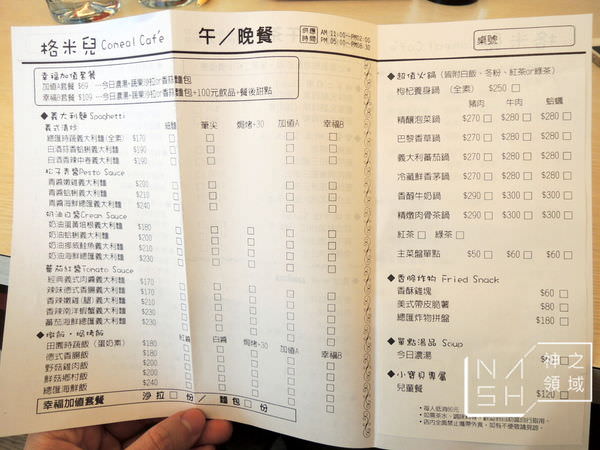 格米兒 Comeal Caf'e
午/晚餐
供應時間 AM 11:00~PM02:00
PM 05:00~PM08:30
桌號
幸福加值套餐
加值A套餐 $69 ---今日濃湯+蔬果沙拉or香蒜麵包
幸福B套餐 $109 ---今日濃湯+蔬果沙拉or香蒜麵包+100元飲品+餐後甜點
◆義大利麵 Spaghetti
義式清炒 細麵 筆尖 焗烤+30 加值A 幸福B
總匯時蔬義大利麵(全素) $170
白酒蒜香蛤蜊義大利麵 $190
白酒香辣中卷義大利麵 $190
松子青醬Pesto Sauce
青醬嫩雞義大利麵 $200
青醬蛤蜊義大利麵 $210
青醬海鮮總匯義大利麵 $240
奶油白醬Cream Sauce
奶油蛋黃培根義大利麵 $180
奶油蛤蜊義大利麵 $200
奶油挪威鮭魚義大利麵 $210
奶油海鮮總匯義大利麵 $230
蕃茄紅醬Tomato Sauce
經典義式肉醬義大利麵 $170
辣味德式香腸義大利麵 $190
香辣嫩雞(腿)義大利麵 $210
香辣南洋鮮蟹義大利麵 $230
蕃茄海鮮總匯義大利麵 $230
◆燉飯、焗烤飯 紅醬 白醬 焗烤+30 加值A 幸福B
田園時蔬飯(蛋奶素) $180
德式香腸飯 $180
野菇雞肉飯 $200
鮮菇鄉村飯 $200
總匯海鮮飯 $240
幸福加值套餐 沙拉 份/麵包 份
◆超值火鍋 (皆附白飯、冬粉、紅茶or綠茶)
枸杞養身鍋 (全素) $250
豬肉 牛肉 蛤蠣
精釀泡菜鍋 $270 $280 $280
巴黎香草鍋 $270 $280 $280
義大利蕃茄鍋 $270 $280 $280
冷藏鮮香茅鍋 $270 $280 $280
香醇牛奶鍋 $290 $300 $300
精燉肉骨茶鍋 $290 $300 $300
紅茶 綠茶
主菜盤單點 $50 $60 $60
◆香脆炸物 Fried Snack
香酥雞塊 $60
美式帶皮脆薯 $80
總匯炸物拼盤 $180
◆單點湯品 Soup
今日濃湯
◆小寶貝專屬
兒童餐 $120
•每人低消80元
NMSH 神之領域